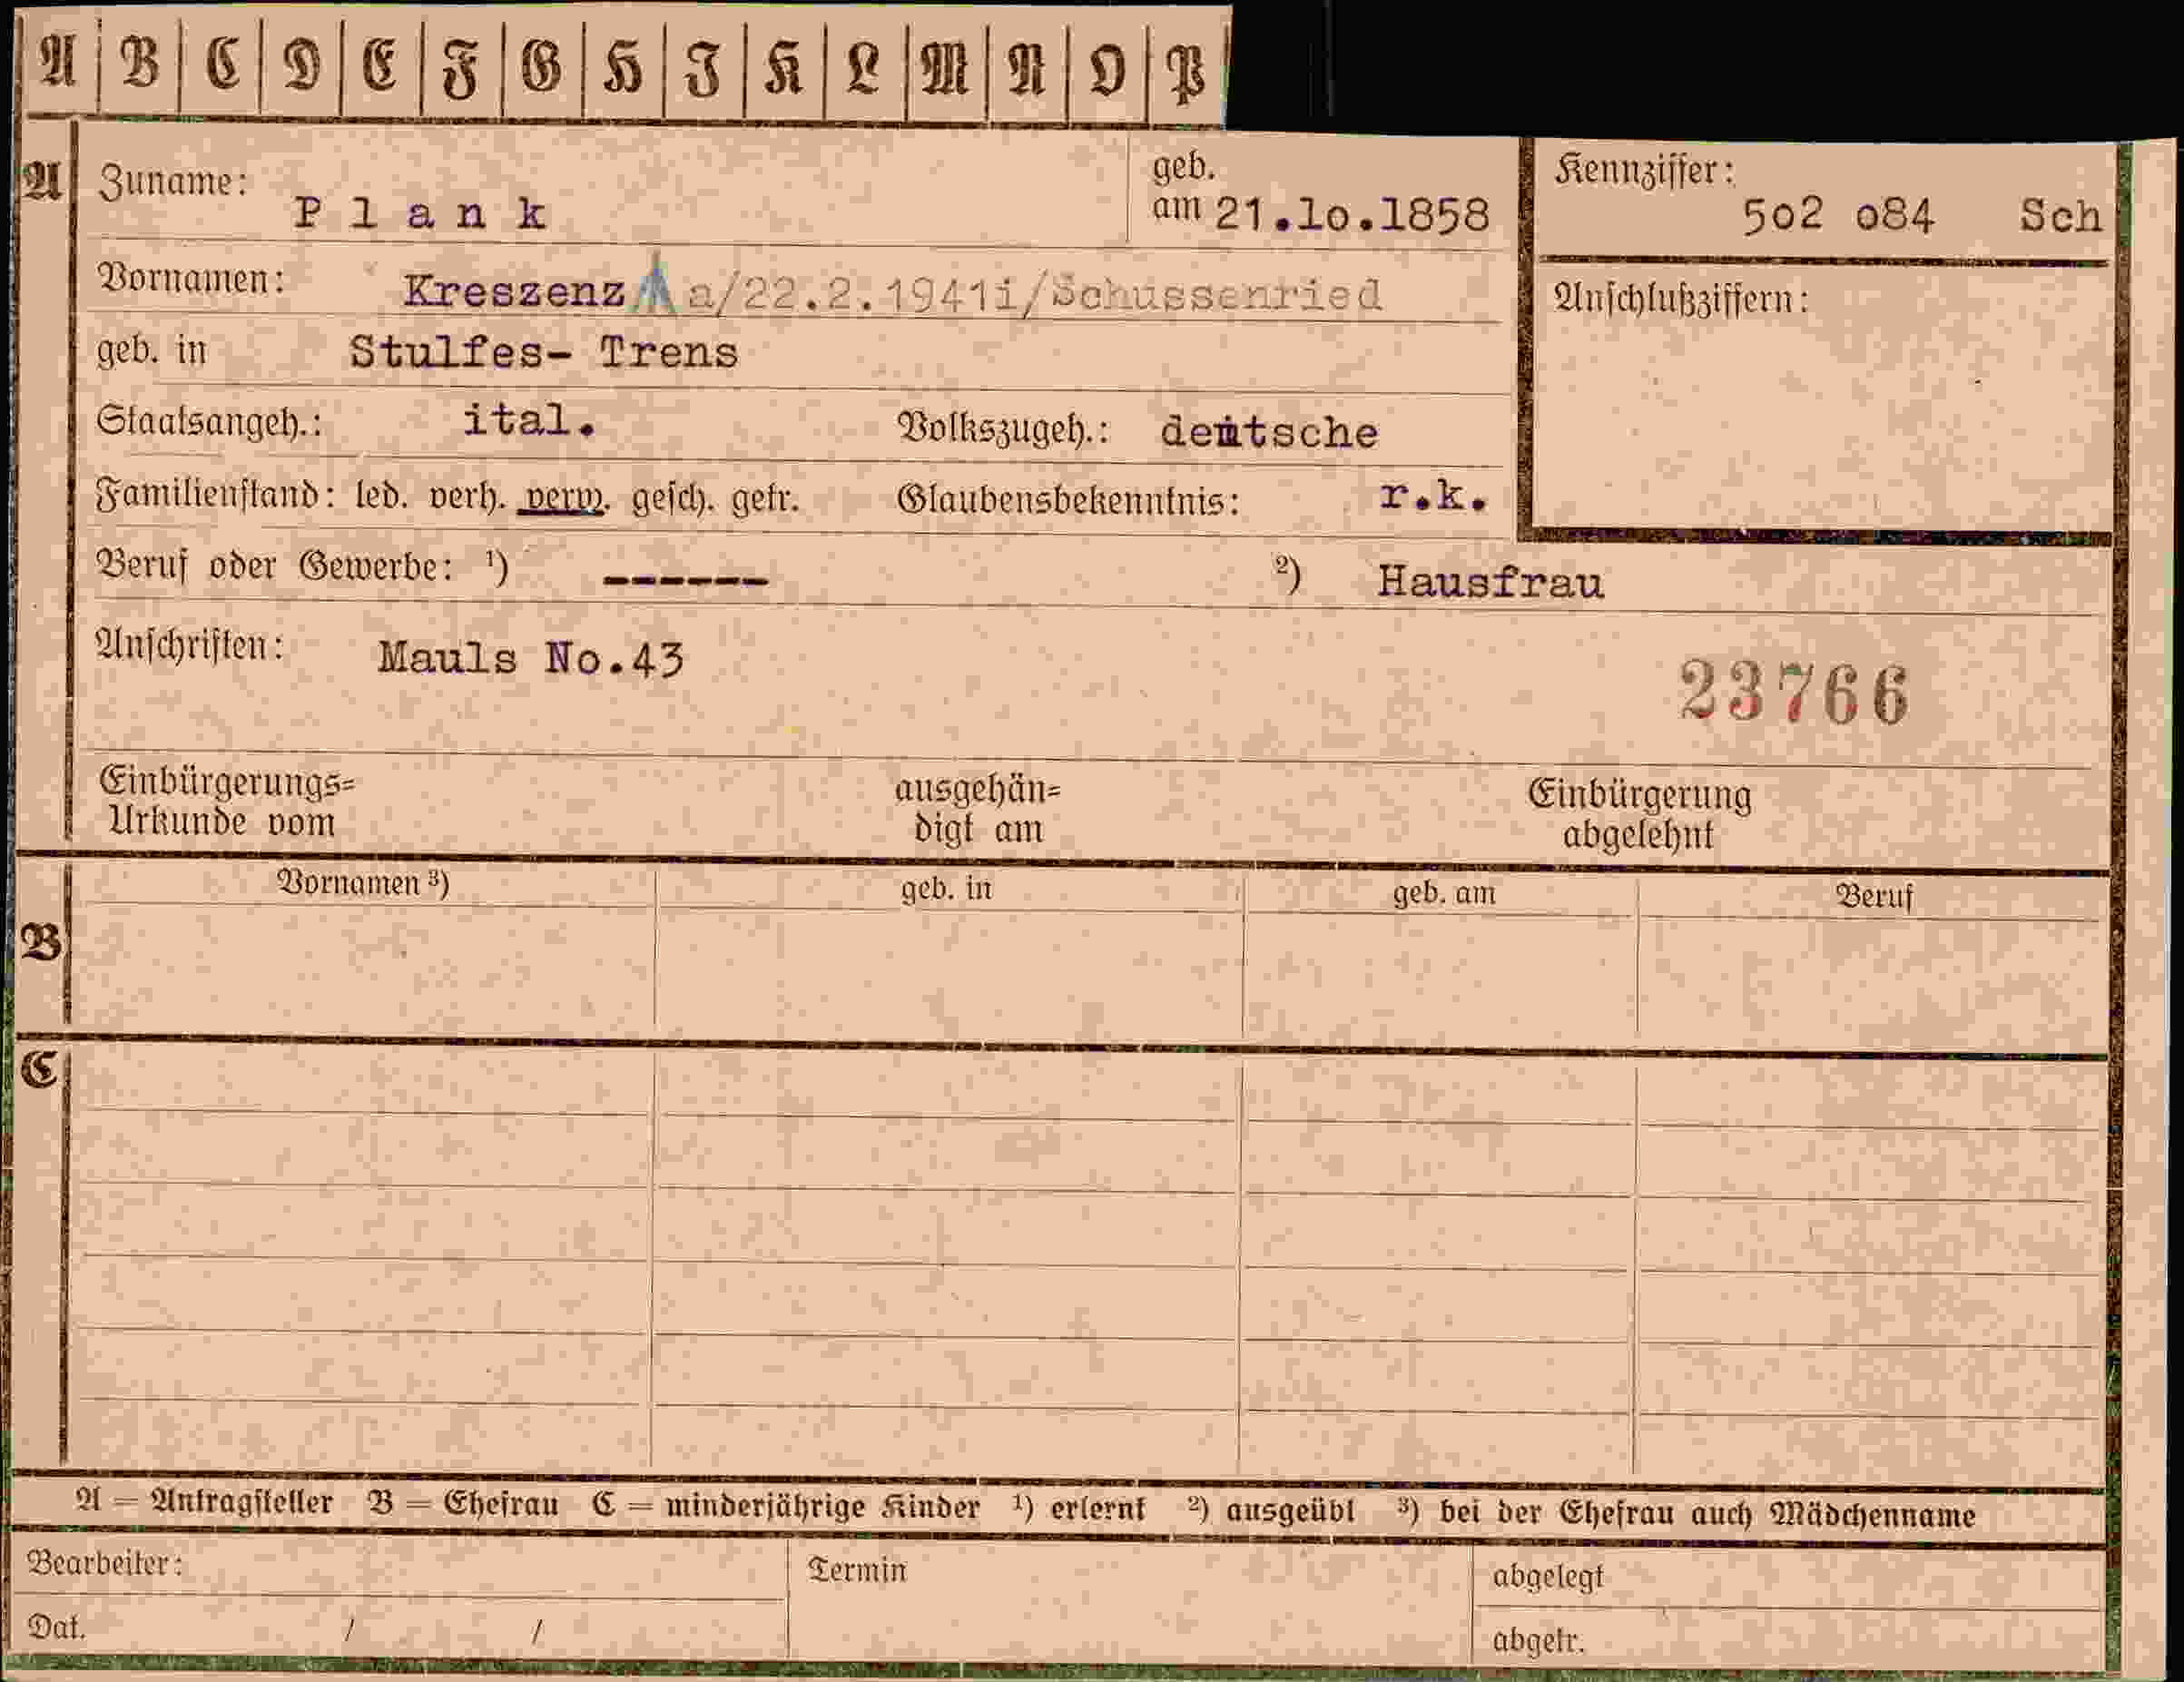 A B C D E F G H I K L M N O P
A Zuname: Plank geb. am 21.1o.1858 Kennziffer: 5o2 o84 Sch
Vornamen: Kreszenz a/22.2.1941i/Schussenried Anschlußziffern:
geb. in Stulfes- Trens
Staatsangeh.: ital. Volkszugeh.: deutsche
Familienstand: led. verh. verw. gesch. getr. Glaubensbekenntnis: r.k.
Beruf oder Gewerbe: ¹) ------ ²) Hausfrau
Anschriften: Mauls No.43
23766
Einbürgerungs= ausgehän= Einbürgerung
Urkunde vom digt am abgelehnt
Vornamen ³) geb. in geb. am Beruf
B
C
A = Antragsteller B = Ehefrau C = minderjährige Kinder ¹) erlernt ²) ausgeübt ³) bei der Ehefrau auch Mädchenname
Bearbeiter: Termin abgelegt
Dat. / / abgetr.